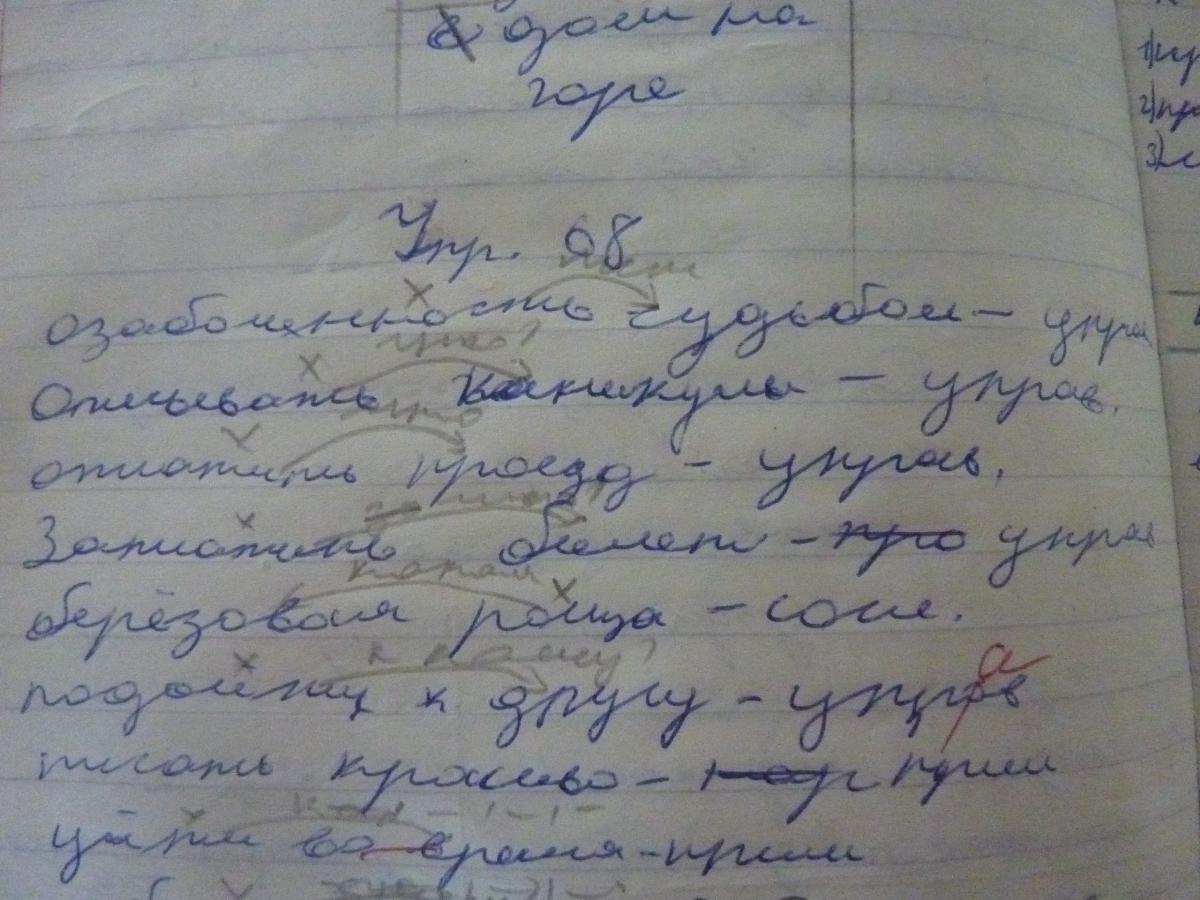 дом на
горе
Упр. 98
озабоченность судьбой - управ
что?
Описывать каникулы - управ.
что
оплатить проезд - управ.
Заплатить билет - про управ
какая
берёзовая роща - согл.
к кому?
подойти к другу - управ а
писать красиво - прим
как
уйти во время - прим
1)
2) пр
3)